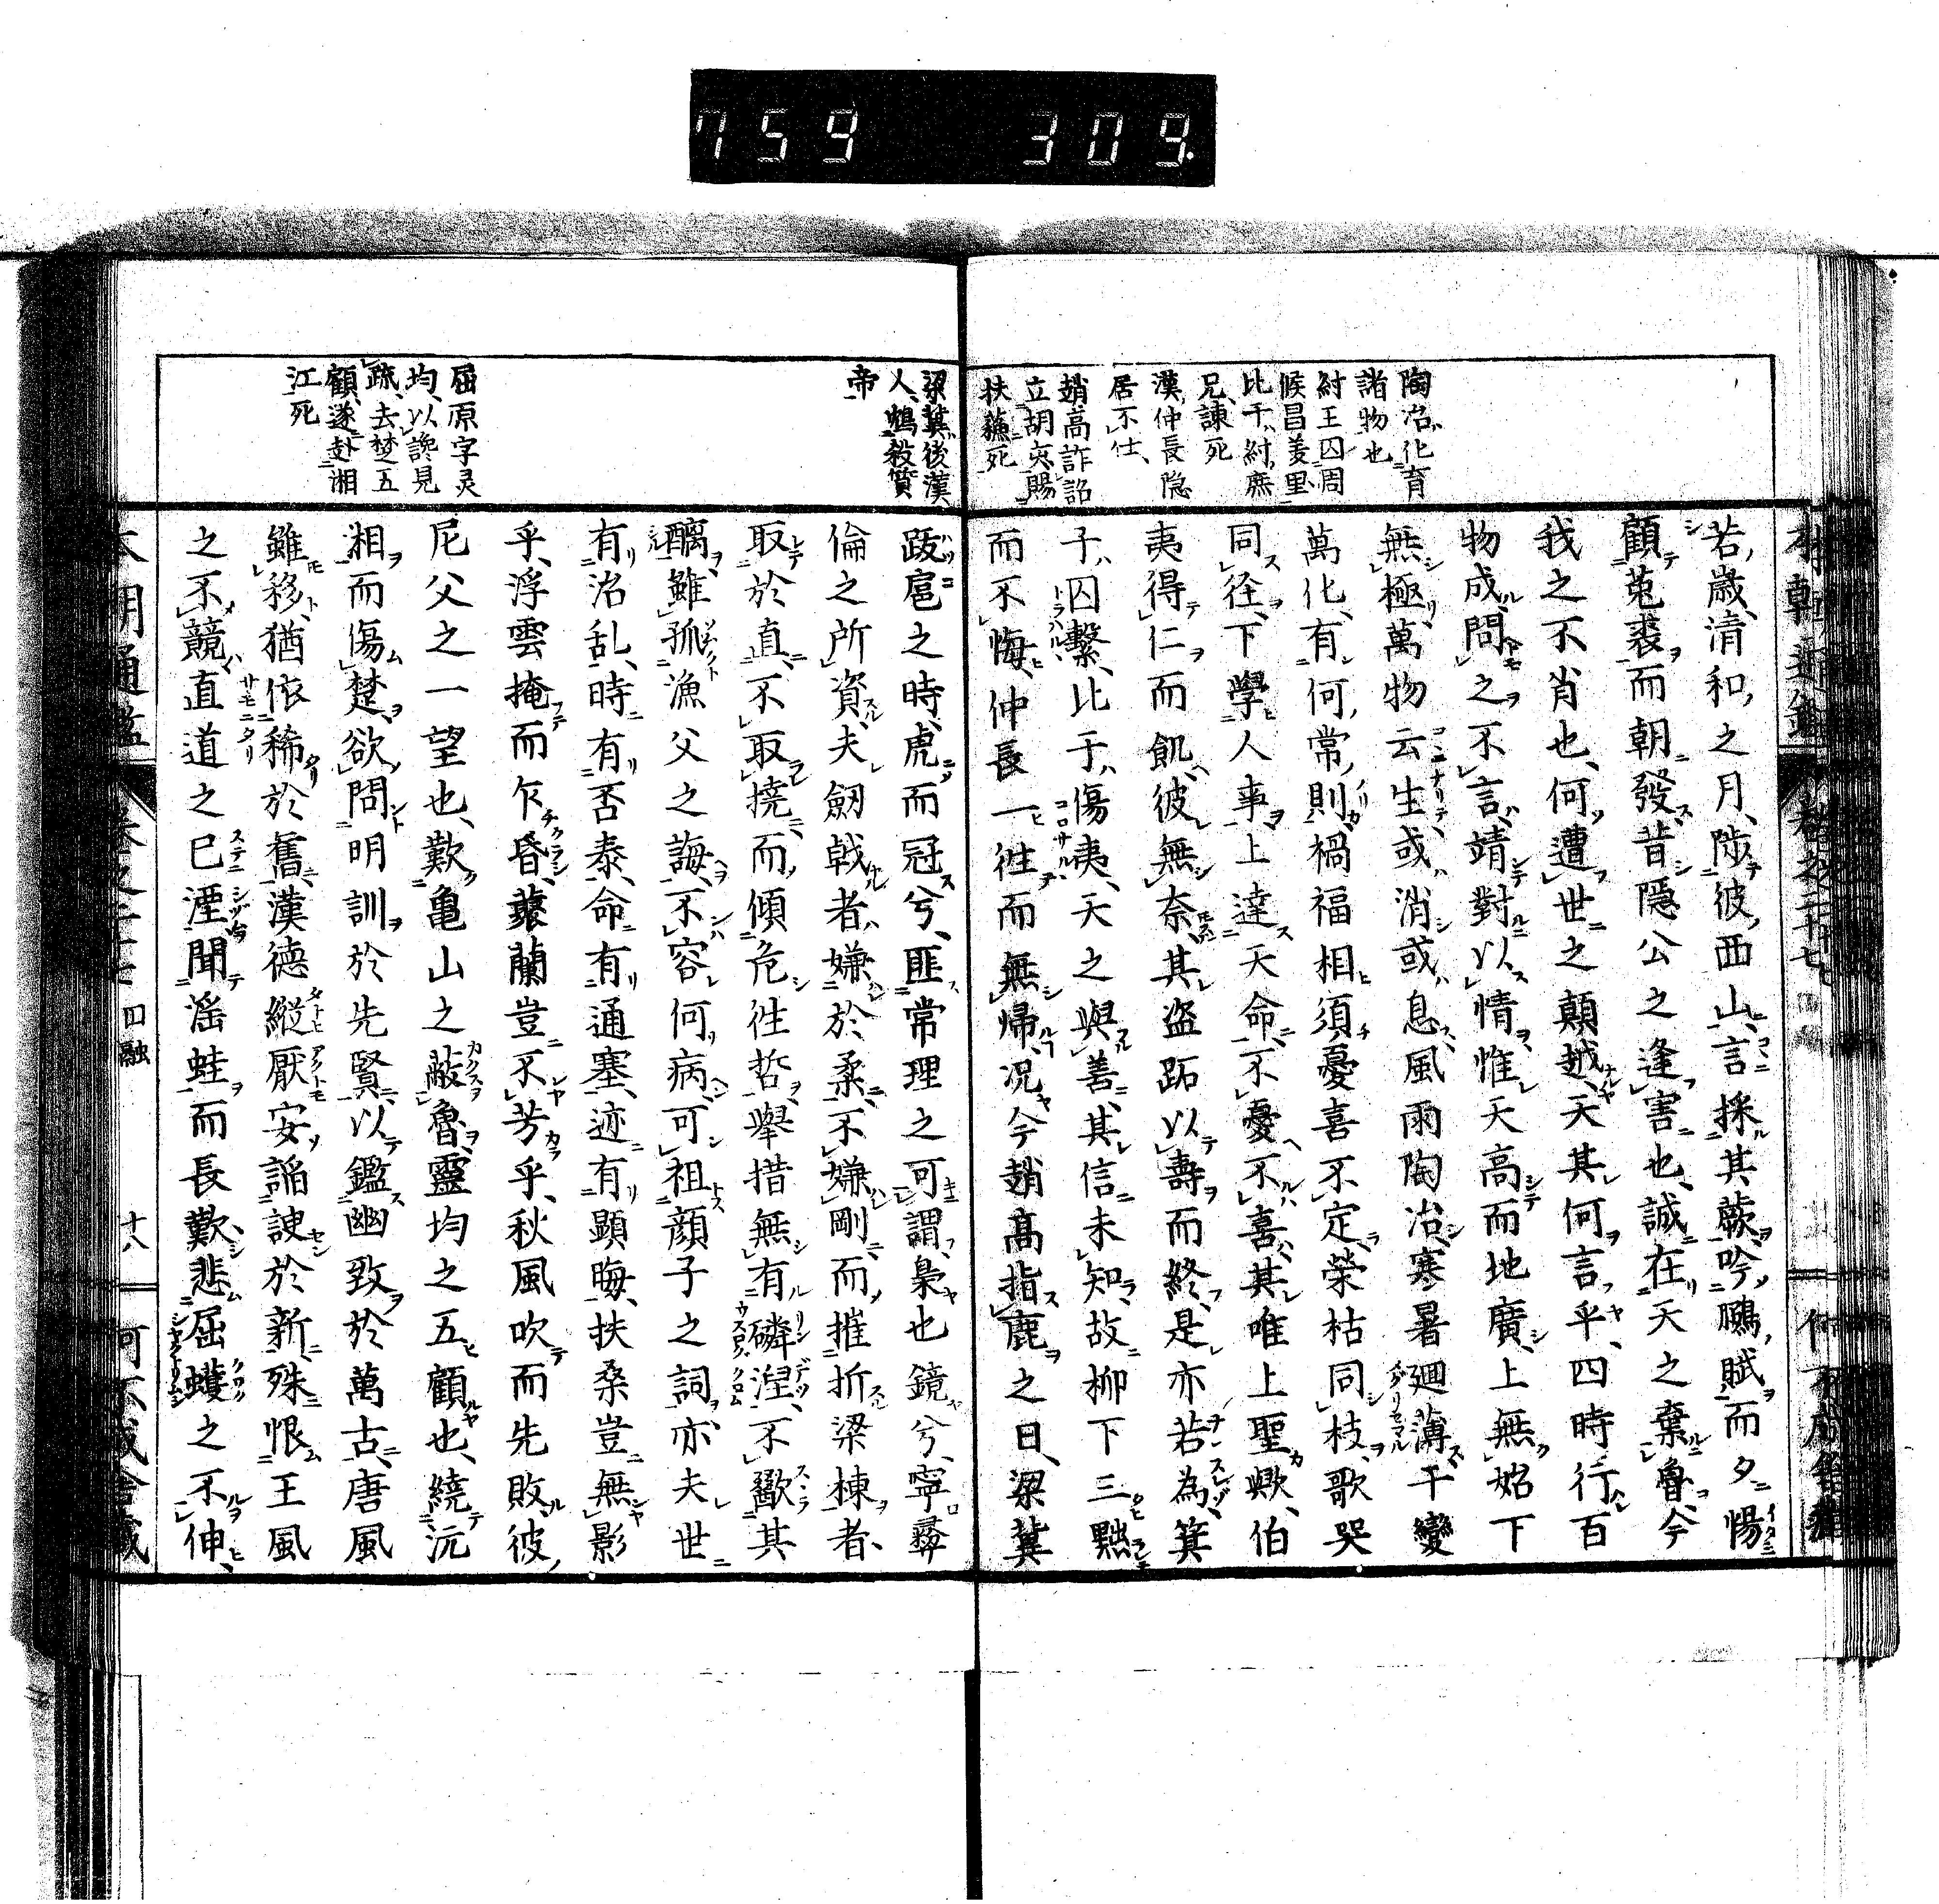 759 309.
陶冶化育
諸物也
紂王囚周
候昌羑里
比干紂庶
兄諫死
漢仲長隠
居不仕
趙高詐詔
立胡亥賜
扶蘓死
若歳清和之月陟彼西山言採其蕨吟鵩賦而夕愓
顧菟裘而朝發昔隠公之逢害也誠在天之棄魯今
我之不肖也何遭世之顛越天其何言乎四時行百
物成問之不言靖對以情惟天高而地廣上無始下
無極萬物云生或消或息風雨陶冶寒暑廻薄千變
萬化有何常則禍福相須憂喜不定榮枯同枝歌哭
同徃下學人事上達天命不憂不喜其唯上聖歟伯
夷得仁而飢彼無奈其盗跖以壽而終是亦若為箕
子囚繫比干傷夷天之與善其信未知故柳下三黜
而不悔仲長一徃而無帰况今趙高指鹿之日梁冀
梁冀後漢
人鴆殺質
帝
屈原字灵
均以讒見
疏去楚五
顧遂赴湘
江死
跋扈之時虎而冠兮匪常理之可謂梟也鏡兮寧彜
倫之所資夫劒戟者嫌於柔不嫌剛而摧折梁棟者
取於直不取撓而傾危徃哲舉措無有磷涅不歠其
醨雖孤漁父之誨不容何病可祖顔子之詞亦夫世
有治乱時有否泰命有通塞迹有顕晦扶桑豈無影
乎浮雲掩而乍昏藂蘭豈不芳乎秋風吹而先敗彼
尼父之一望也歎亀山之蔽魯靈均之五顧也繞沅
湘而傷楚欲問明訓於先賢以鑑幽致於萬古唐風
雖移猶依稀於舊漢徳縦厭安謟諛於新殊恨王風
之不競直道之已湮聞滛蛙而長歎悲屈蠖之不伸
本朝通鑑
四融
十八